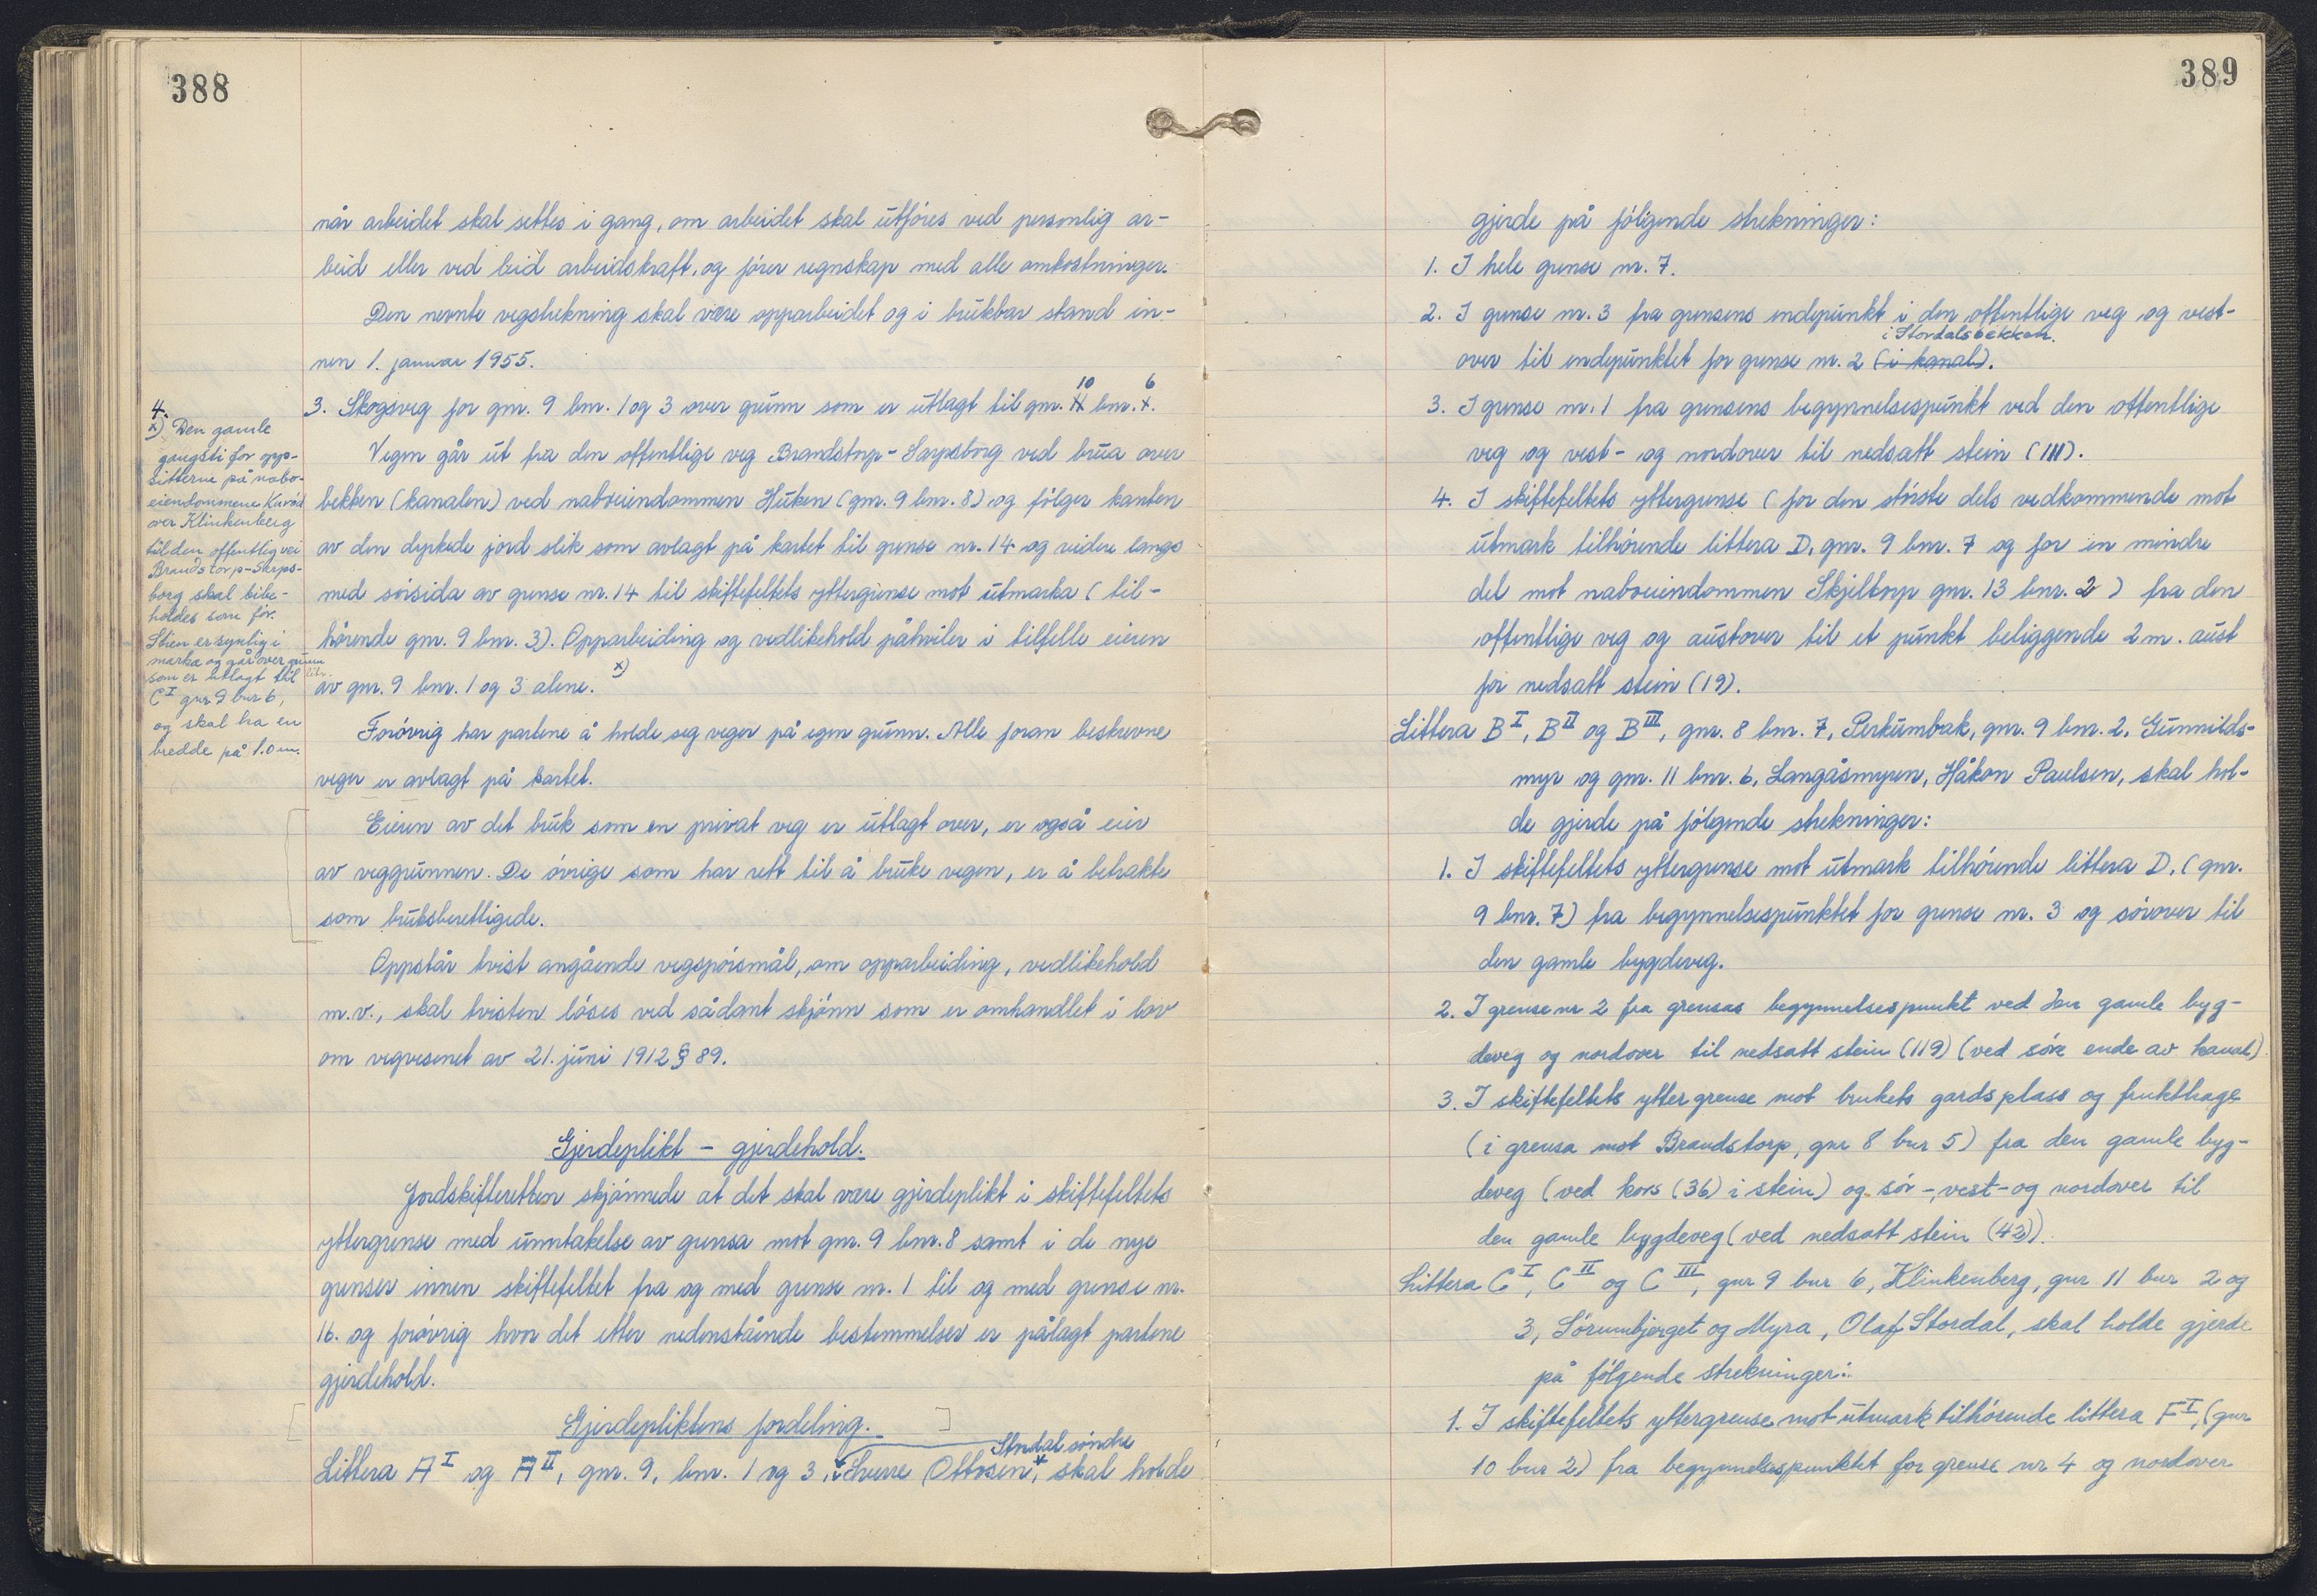 388
når arbeidet skal settes i gang, om arbeidet skal utføres ved personlig ar-
beid eller ved leid arbeidskraft, og fører regnskap med alle omkostninger.
Den nevnte vegstrekning skal være opparbeidet og i brukbar stand in-
nen 1. januar 1955.
3. Skogsveg for gnr. 9 bnr. 1 og 3 over grunn som er utlagt til gnr. 11 10 bnr. 6.
Vegen går ut fra den offentlige veg Brandstorp - Sarpsborg ved brua over
bekken (kanalen) ved naboeiendommen Huken (gnr. 9 bnr. 8) og følger kanten
av den dyrkede jord slik som avlagt på kartet til grense nr. 14 og videre langs
med sørsida av grense nr. 14 til skiftefeltets yttergrense mot utmarka (til-
hørende gnr. 9 bnr. 3). Opparbeiding og vedlikehold påhviler i tilfelle eieren
av gnr. 9 bnr. 1 og 3 alene. x)
Forøvrig har partene å holde seg veger på egen grunn. Alle foran beskrevne
veger er avlagt på kartet.
Eieren av det bruk som en privat veg er utlagt over, er også eier
av veggrunnen. De øvrige som har rett til å bruke vegen, er å betrakte
som bruksberettigede.
Oppstår tvist angående vegspørsmål, om opparbeiding, vedlikehold
m.v., skal tvisten løses ved sådant skjønn som er omhandlet i lov
om vegvesenet av 21. juni 1912 § 89.
Gjerdeplikt - gjerdehold.
Jordskifteretten skjønnede at det skal være gjerdeplikt i skiftefeltets
yttergrense med unntakelse av grensa mot gnr. 9 bnr. 8 samt i de nye
grenser innen skiftefeltet fra og med grense nr. 1 til og med grense nr.
16. og forøvrig hvor det etter nedenstående bestemmelser er pålagt partene
gjerdehold.
Gjerdepliktens fordeling.
Stordal søndre
Littera A I og A II, gnr. 9, bnr. 1 og 3, Sverre Ottosen, skal holde
4.
x) Den gamle
gangsti for opp-
sitterne på nabo-
eiendommene
over Klinkenberg
til den offentlig vei
Brandstorp-Sarps-
borg skal bibe-
holdes som før.
Stien er synlig i
marka og går over grunn
som er utlagt til litr.
C I gnr 9 bnr 6,
og skal ha en
bredde på 1.0 m.
389
gjerde på følgende strekninger:
1. I hele grense nr. 7.
2. I grense nr. 3 fra grensens endepunkt i den offentlige veg og vest-
i Stordalsbekken.
over til endepunktet for grense nr. 2 (i kanal).
3. I grense nr. 1 fra grensens begynnelsespunkt ved den offentlige
veg og vest- og nordover til nedsatt stein (111).
4. I skiftefeltets yttergrense (for den største dels vedkommende mot
utmark tilhørende littera D, gnr. 9 bnr. 7 og for en mindre
del mot naboeiendommen Skjeltorp gnr. 13 bnr. 2) fra den
offentlige veg og austover til et punkt beliggende 2 m. aust
for nedsatt stein (19).
Littera B I, B II og B III, gnr. 8 bnr. 7, Perkumbak, gnr. 9 bnr. 2, Gunnilds-
myr og gnr. 11 bnr. 6, Langåsmyren, Håkon Paulsen, skal hol-
de gjerde på følgende strekninger:
1. I skiftefeltets yttergrense mot utmark tilhørende littera D, (gnr.
9 bnr. 7) fra begynnelsespunktet for grense nr. 3 og sørover til
den gamle bygdeveg.
2. I grense nr 2 fra grensas begynnelsespunkt ved den gamle byg-
deveg og nordover til nedsatt stein (119) (ved søre ende av kanal).
3. I skiftefeltets yttergrense mot brukets gardsplass og frukthage
(i grensa mot Brandstorp, gnr 8 bnr 5) fra den gamle byg-
deveg (ved kors (36) i stein) og sør-, vest- og nordover til
den gamle bygdeveg (ved nedsatt stein (42)).
Littera C I, C II og C III, gnr 9 bnr 6, Klinkenberg, gnr 11 bnr 2 og
3, Sørumbjerget og Myra, Olaf Stordal, skal holde gjerde
på følgende strekninger:
1. I skiftefeltets yttergrense mot utmark tilhørende littera F I, (gnr
10 bnr 2) fra begynnelsespunktet for grense nr 4 og nordover